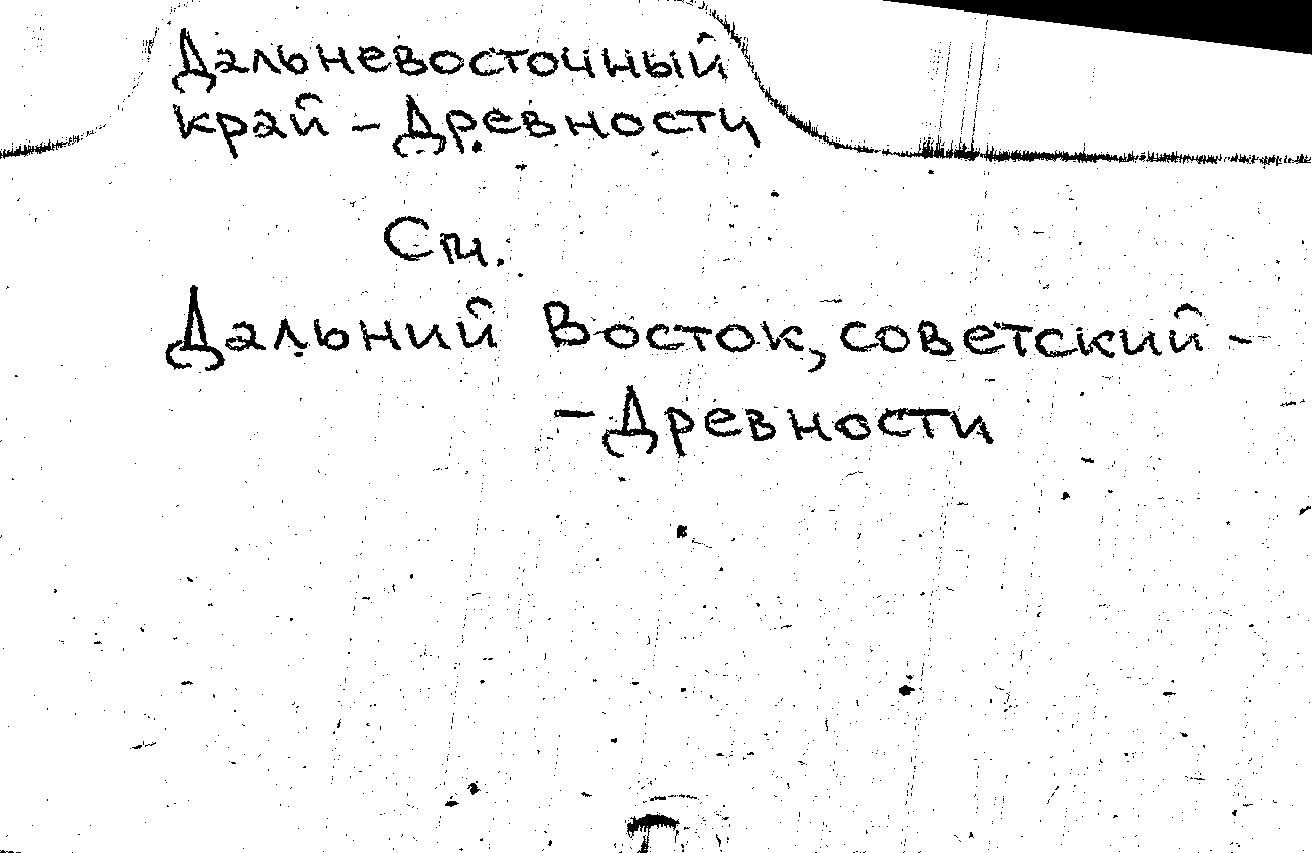 Дальневосточный
край – Древности
См.
Дальний Восток, советский –
– Древности